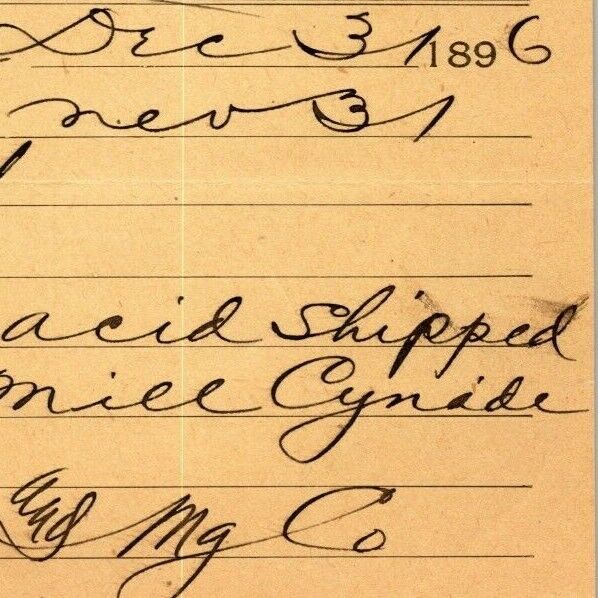 Dec 31 1896
Nev 31
acid shipped
mill Cynade
Mg Co